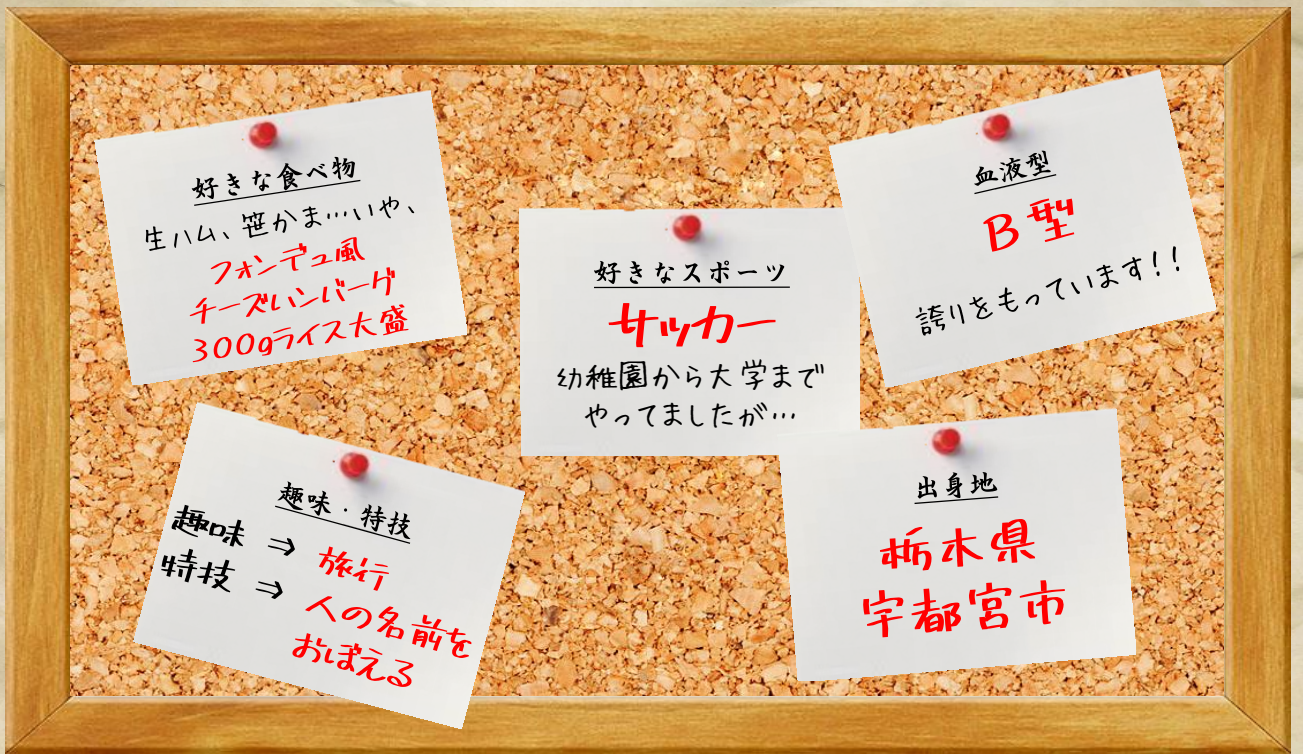 好きな食べ物
生ハム、笹かま…いや、
フォンデュ風
チーズいンバーグ
300gライス大盛
好きなスポーツ
サッカー
幼稚園から大学まで
やってましたが…
血液型
B型
誇りをもっています!!
趣味・特技
趣味 ⇒ 旅行
特技 ⇒ 人の名前を
おぼえる
出身地
栃木県
宇都宮市